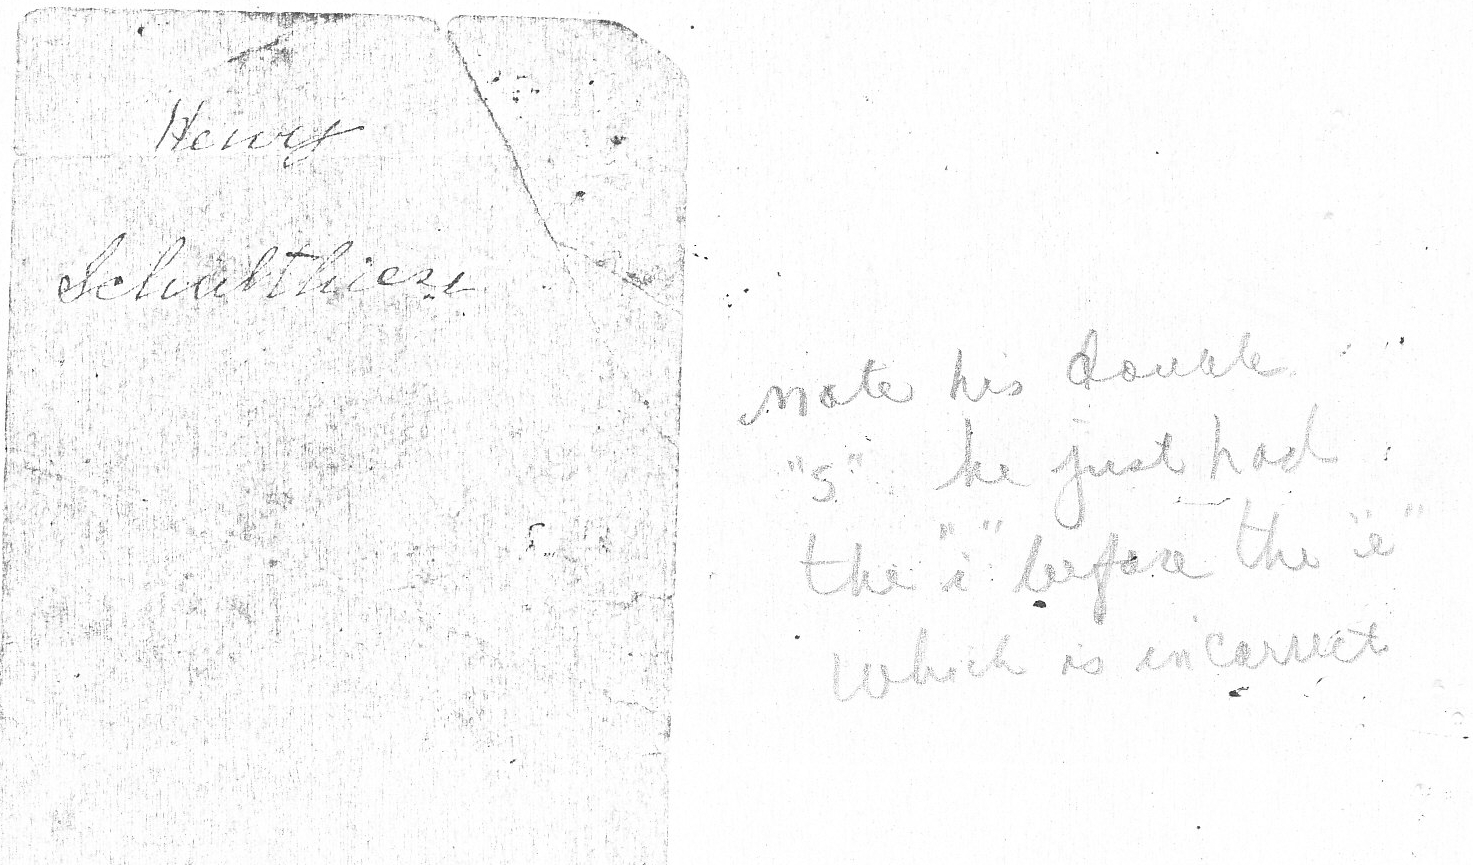 Henry
Schulthiess
note his double
"s" he just had
the "i" before the "e"
which is incorrect